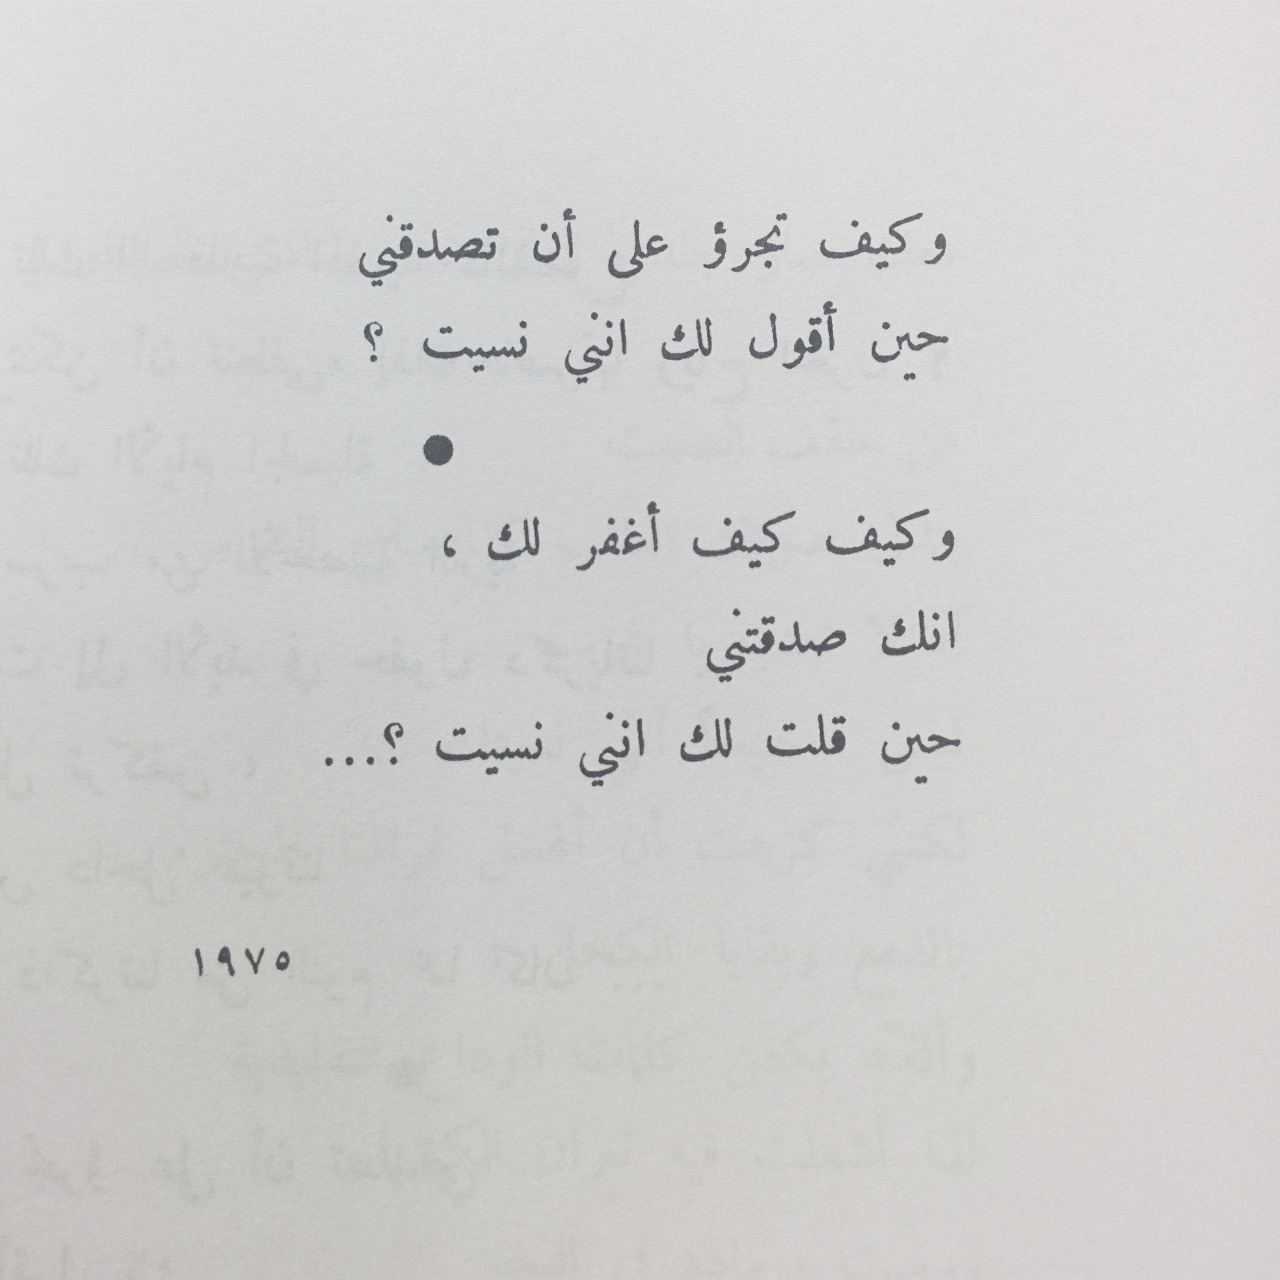 وكيف تجرؤ على أن تصدقني
حين أقول لك انني نسيت ؟
●
وكيف كيف أغفر لك ،
انك صدقتني
حين قلت لك انني نسيت ؟...
١٩٧٥